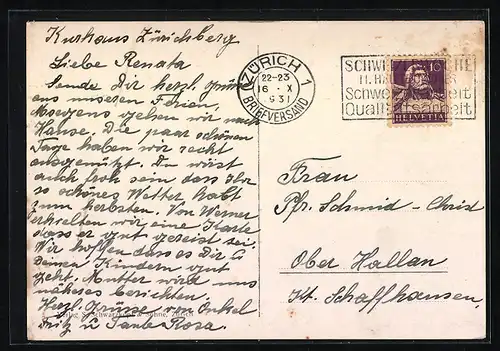 Kurhaus Zürichberg
Liebe Renata
Sende Dir herzl. Grüsse
aus unseren Ferien,
Morgens gehen wir nach
Hause. Die paar schönen
Tage haben wir recht
ausgenützt. Du wirst
auch froh sein dass Ihr
so schönes Wetter habt
zum herbsten. Von Werner
erhielten wir eine Karte
dass er gut gereist sei.
Wir hoffen dass es Dir &
Deinen Kindern gut
geht. Mutter wird uns
näheres berichten.
Herzl. Grüsse von Onkel
Fritz u Tante Rosa.
Söhne, Zürich
ZÜRICH 1
22-23
16. X
931
BRIEFVERSAND
SCHWEI
Schwe
Qualitätsarbeit
10
HELVETIA
Frau
Pfr. Schmid-Christ
Ober Hallau
Kt. Schaffhausen,